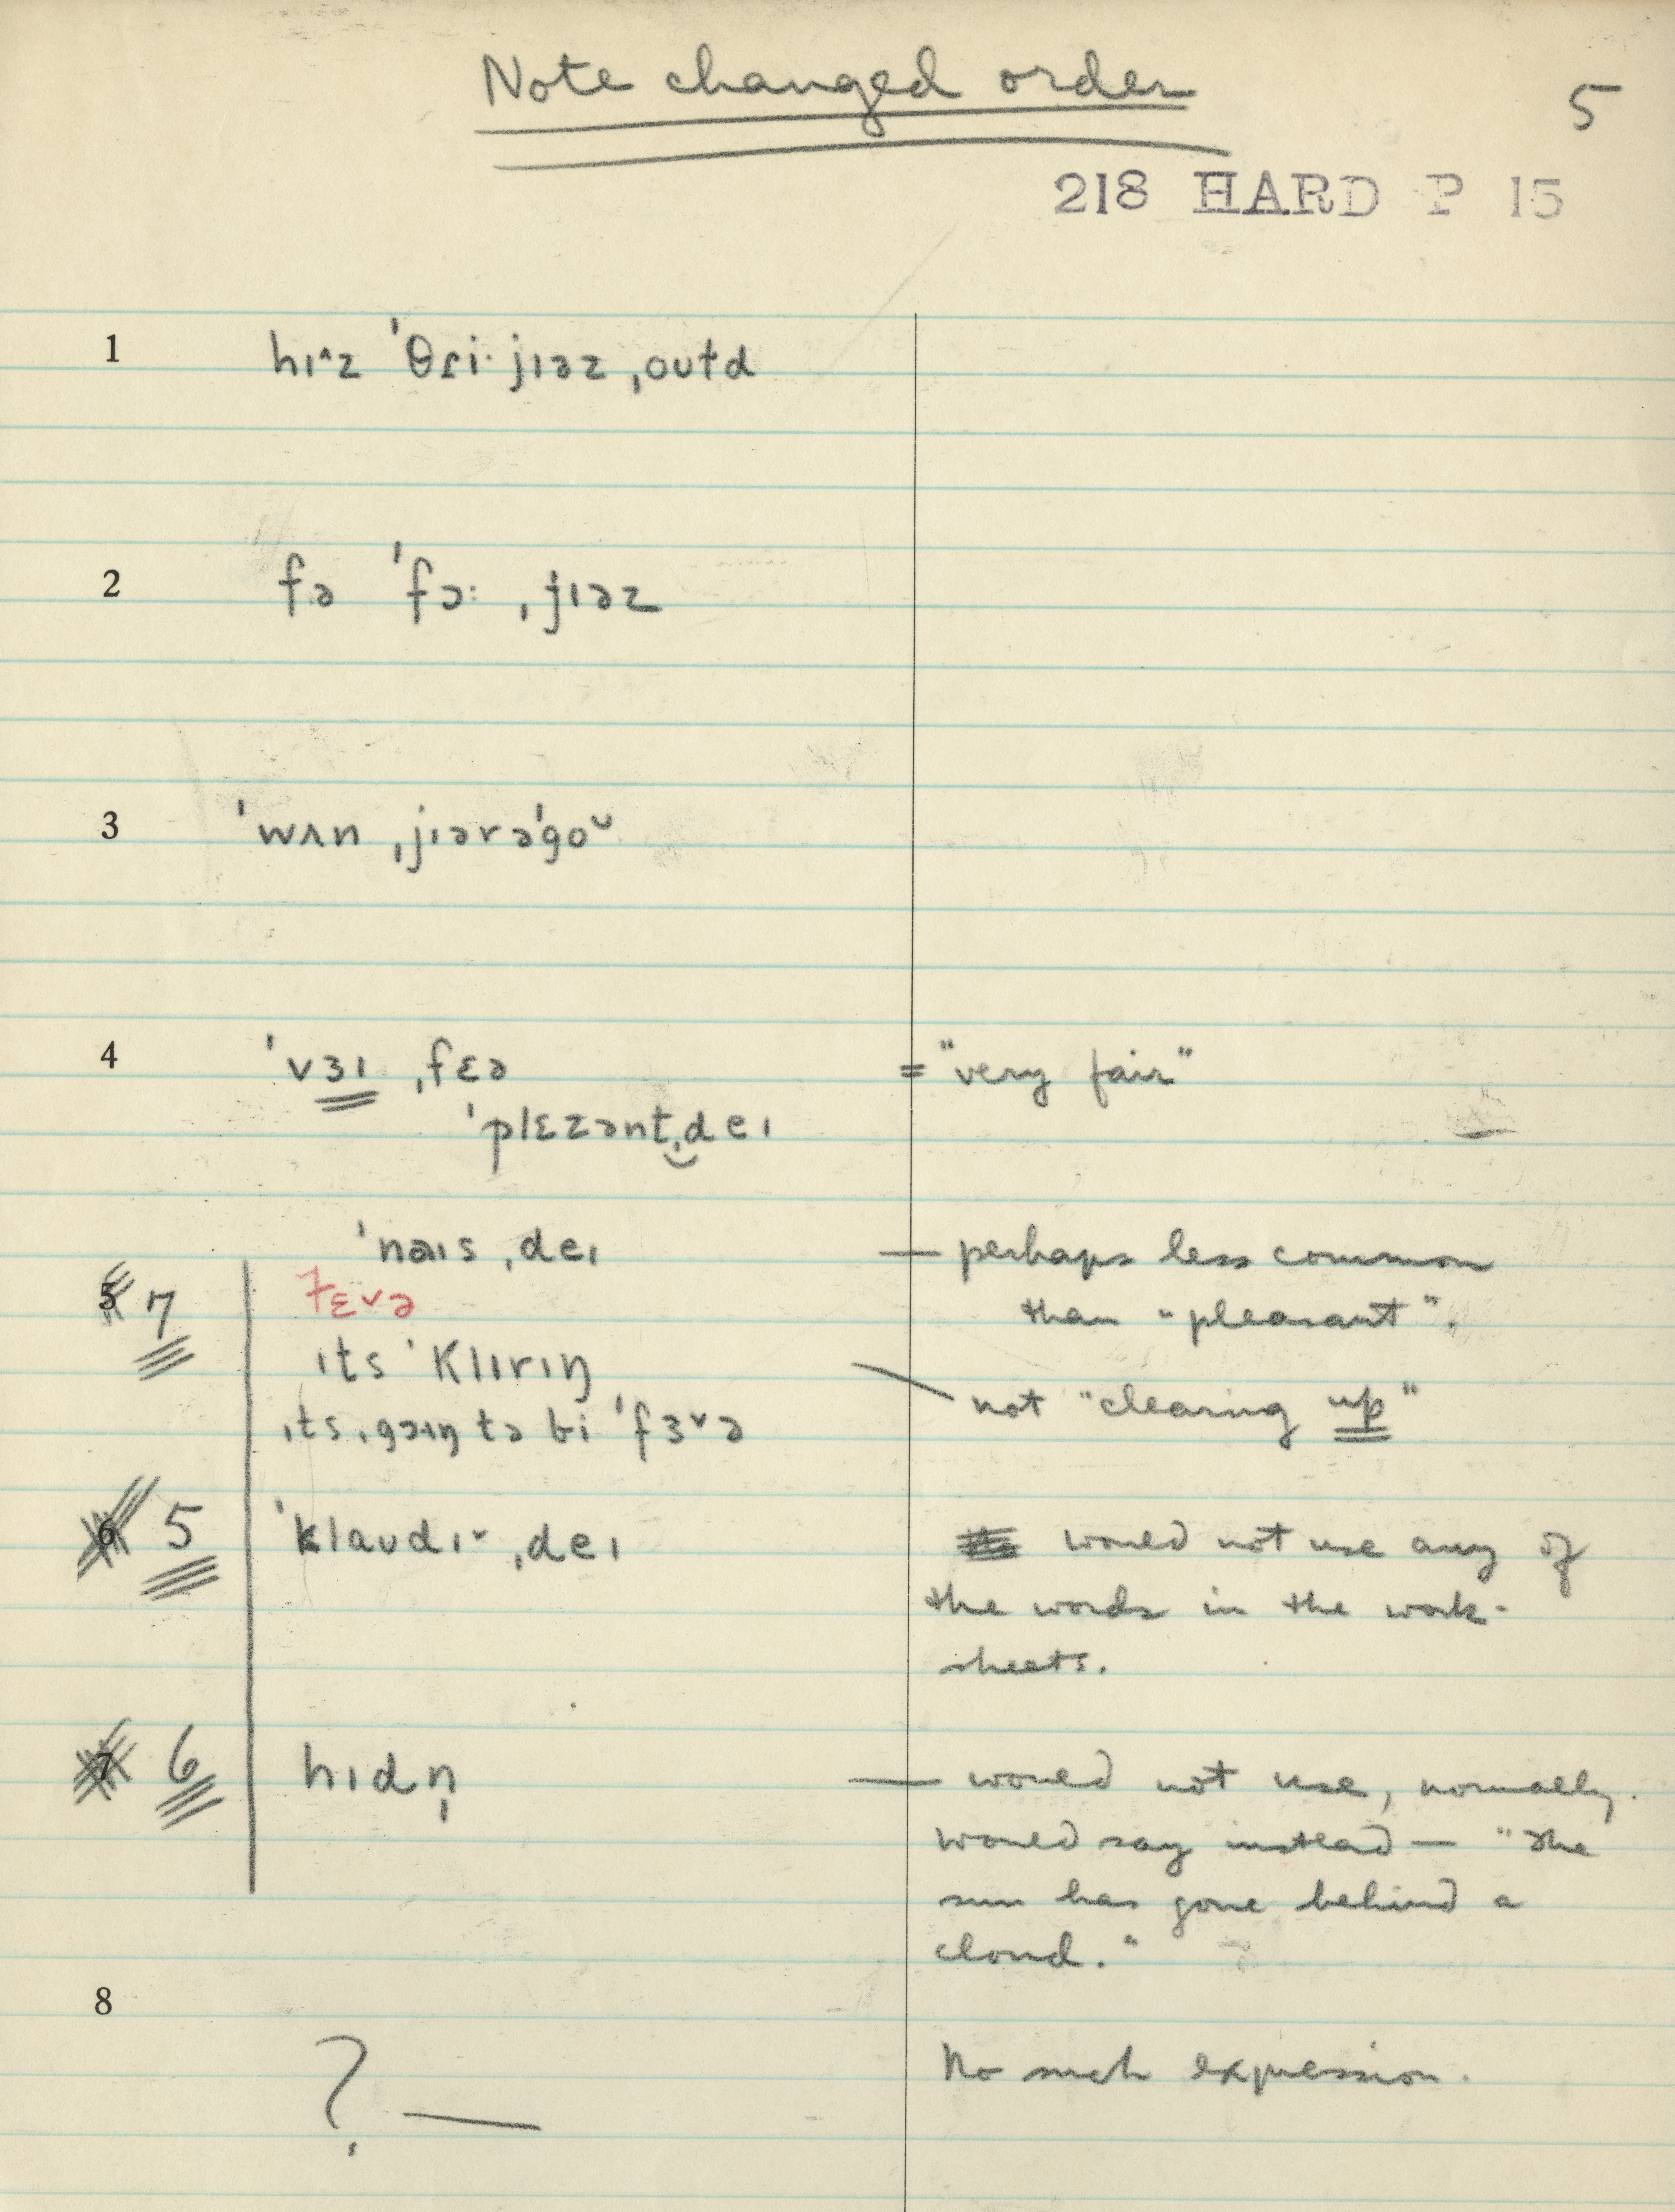 Note changed order
5
218 HARD P 15
1 hɪ^z 'θɾi· jɪəz ˌoʊɫd
2 fə 'fɔ: ˌjɪəz
3 'wʌn ˌjɪərə'goᵕ
4 'vɜɪ ˌfɛə = "very fair"
'plɛzənt‿ˌdeɪ
'naɪs ˌdeɪ — perhaps less common
5 7 fɛ˅ə than "pleasant".
ɪts 'klɪrɪŋ — not "clearing up"
ˌɪts ˌgɔɪŋ tə bi 'fɜ˅ə
6 5 'klaʊdɪ˅ ˌdeɪ would not use any of
the words in the work-
sheets.
7 6 hɪdn̩ — would not use, normally.
would say instead — "The
sun has gone behind a
cloud."
8
? — No such expression.